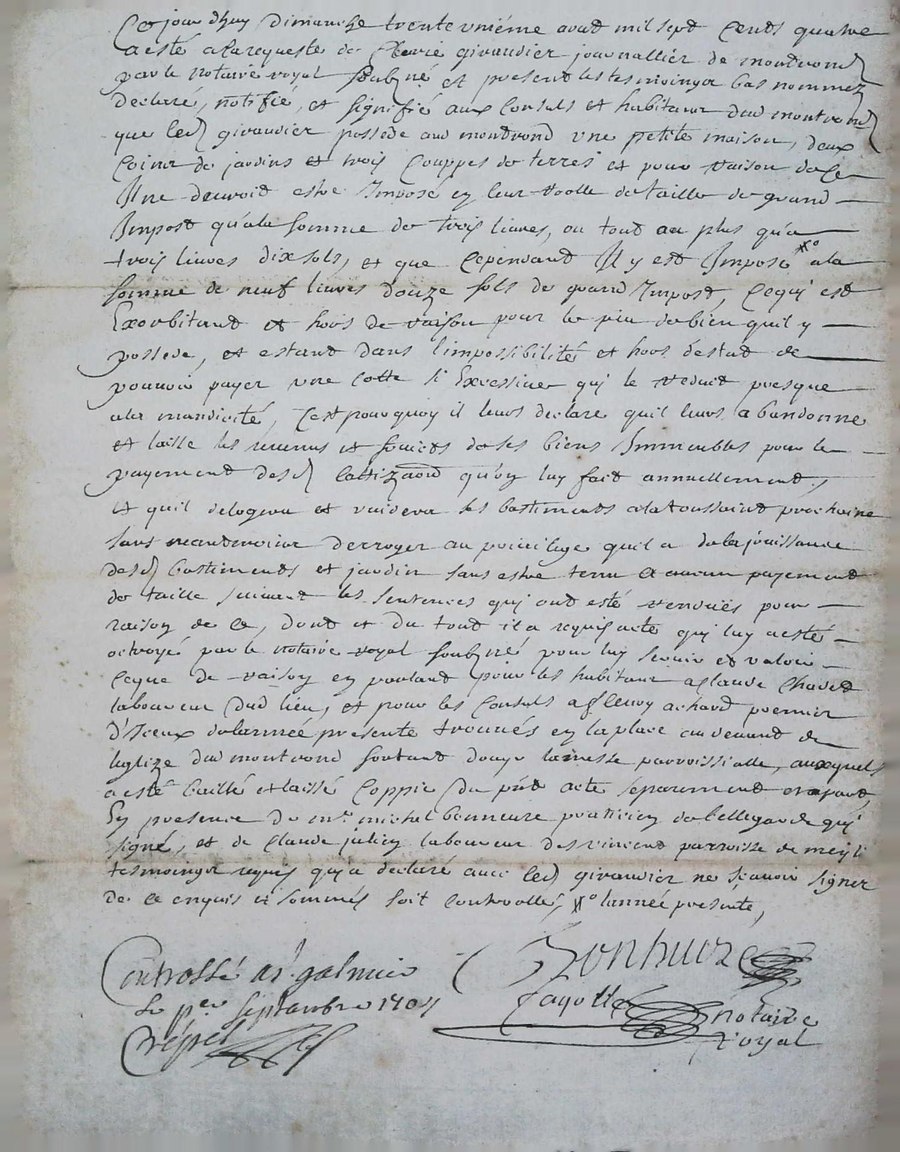 Ce jourd'huy dimanche trente uniéme aoust mil sept cents quatre
a esté a la requeste de Pierre giraudier journallier de montrond
par le notaire royal soubzné et present les tesmoingz bas nommez
declaré, notifié, et signifié aux Consuls et habitans dud montrond
que led giraudier possede aud montrond une petite maison, deux
Coins de jardins et trois Couppes de terres et pour raison de Ce
Il ne devroit estre Imposé en leur roolle de taille de grand
Impost qu'a la somme de trois livres, ou tout au plus qu'a
trois livres dix sols, et que Cependant Il y est Imposé xo a la
somme de neuf livres douze sols de grand Impost, Ce qui est
Exorbitant et hors de raison pour le peu de bien quil y
possede, et estant dans l'impossibilité et hors destat de
pouvoir payer une Cotte si Excessive qui le reduit presque
a la mandicité, C'est pourquoy il leurs declare quil leurs abandonne
et laisse les revenus et fruicts de ses biens Immeubles pour le
payement desd Cottizaons qu'on luy fait annuellement,
et quil delogera et vuidera les bastiments a la toussaint prochaine
sans neantmoins derroger au privilege quil a de la jouissance
desd bastiments et jardin sans estre tenu a aucun payement
de taille suivant les sentences qui ont esté rendues pour
raison de Ce, dont et du tout il a requis acte qui luy a esté
octroyé par le notaire royal soubzné pour luy servir et valoir
Ce que de raison en parlant pour les habitans a Claude Chavet
laboureur dud lieu, et pour les Consuls a fleury achard premier
d'Iceux de l'année presente trouvés en la place au devant de
l'eglize dud montrond sortant d'ouyr la messe parroissialle, auxquels
a esté baillé et laissé Coppie du pnt acte séparement
En presence de me michel bonneure praticien de bellegarde qui
signé, et de Claude julien laboureur de st vincent parroisse de
tesmoingz requis qui a declaré avec led giraudier ne sçavoir signer
de Ce enquis et sommés soit Controllé, xo lannée presente,
Controllé a st galmier
Le per septembre 1704
Bonheure
Fayolle notaire
royal